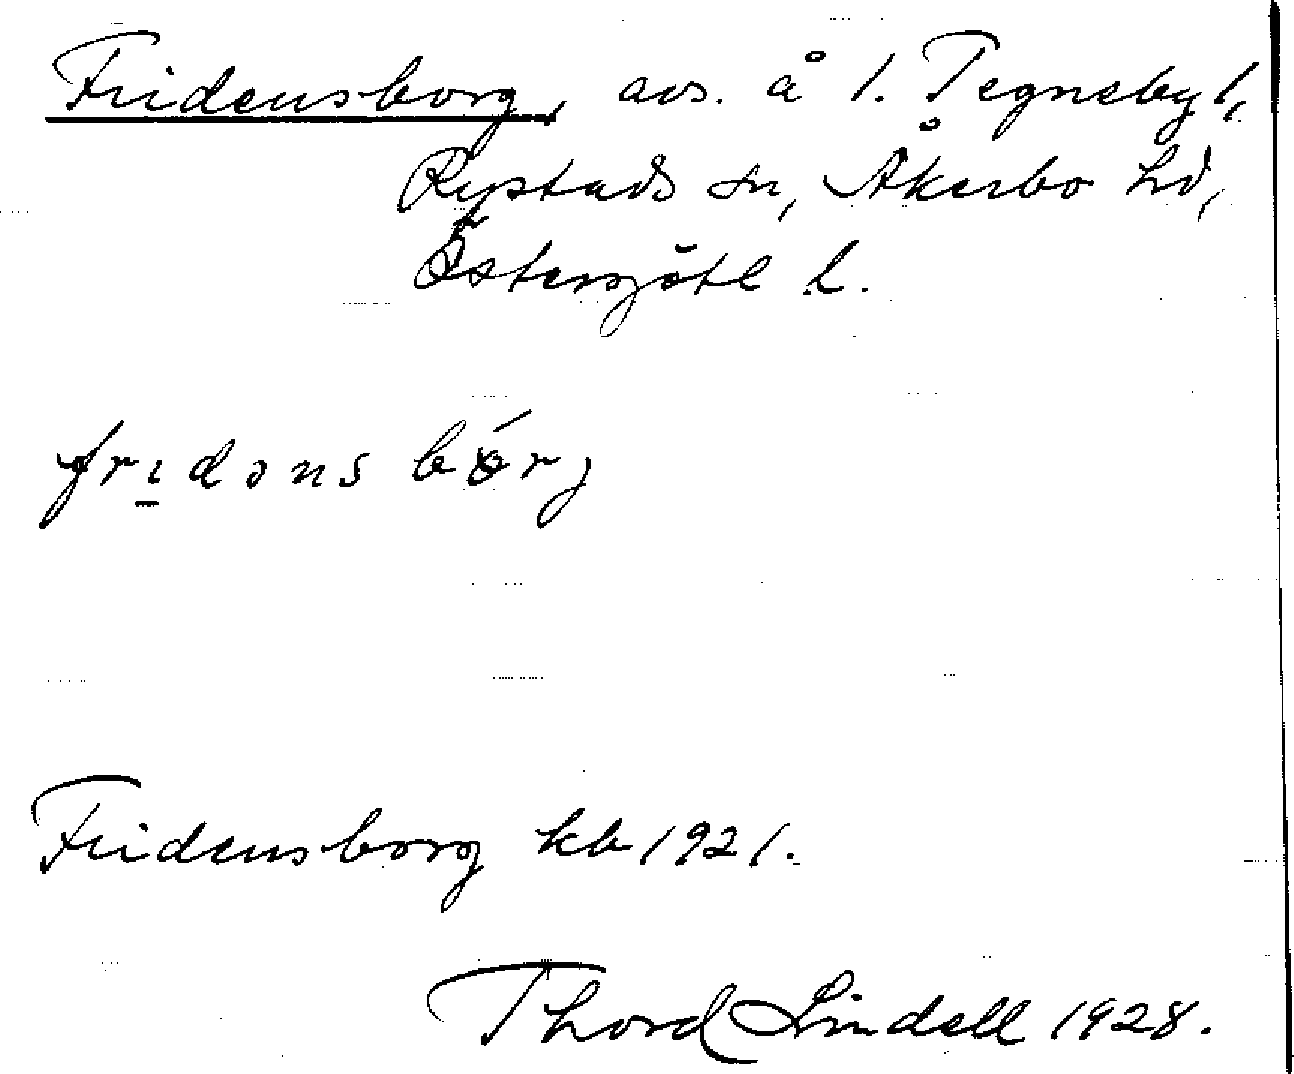 Fridensborg, avs. å 1. Tegneby 1,
Rystads sn, Åkerbo hd,
Östergötl l.
fridənsbórj
Fridensborg kb 1921.
Thord Lindell 1928.